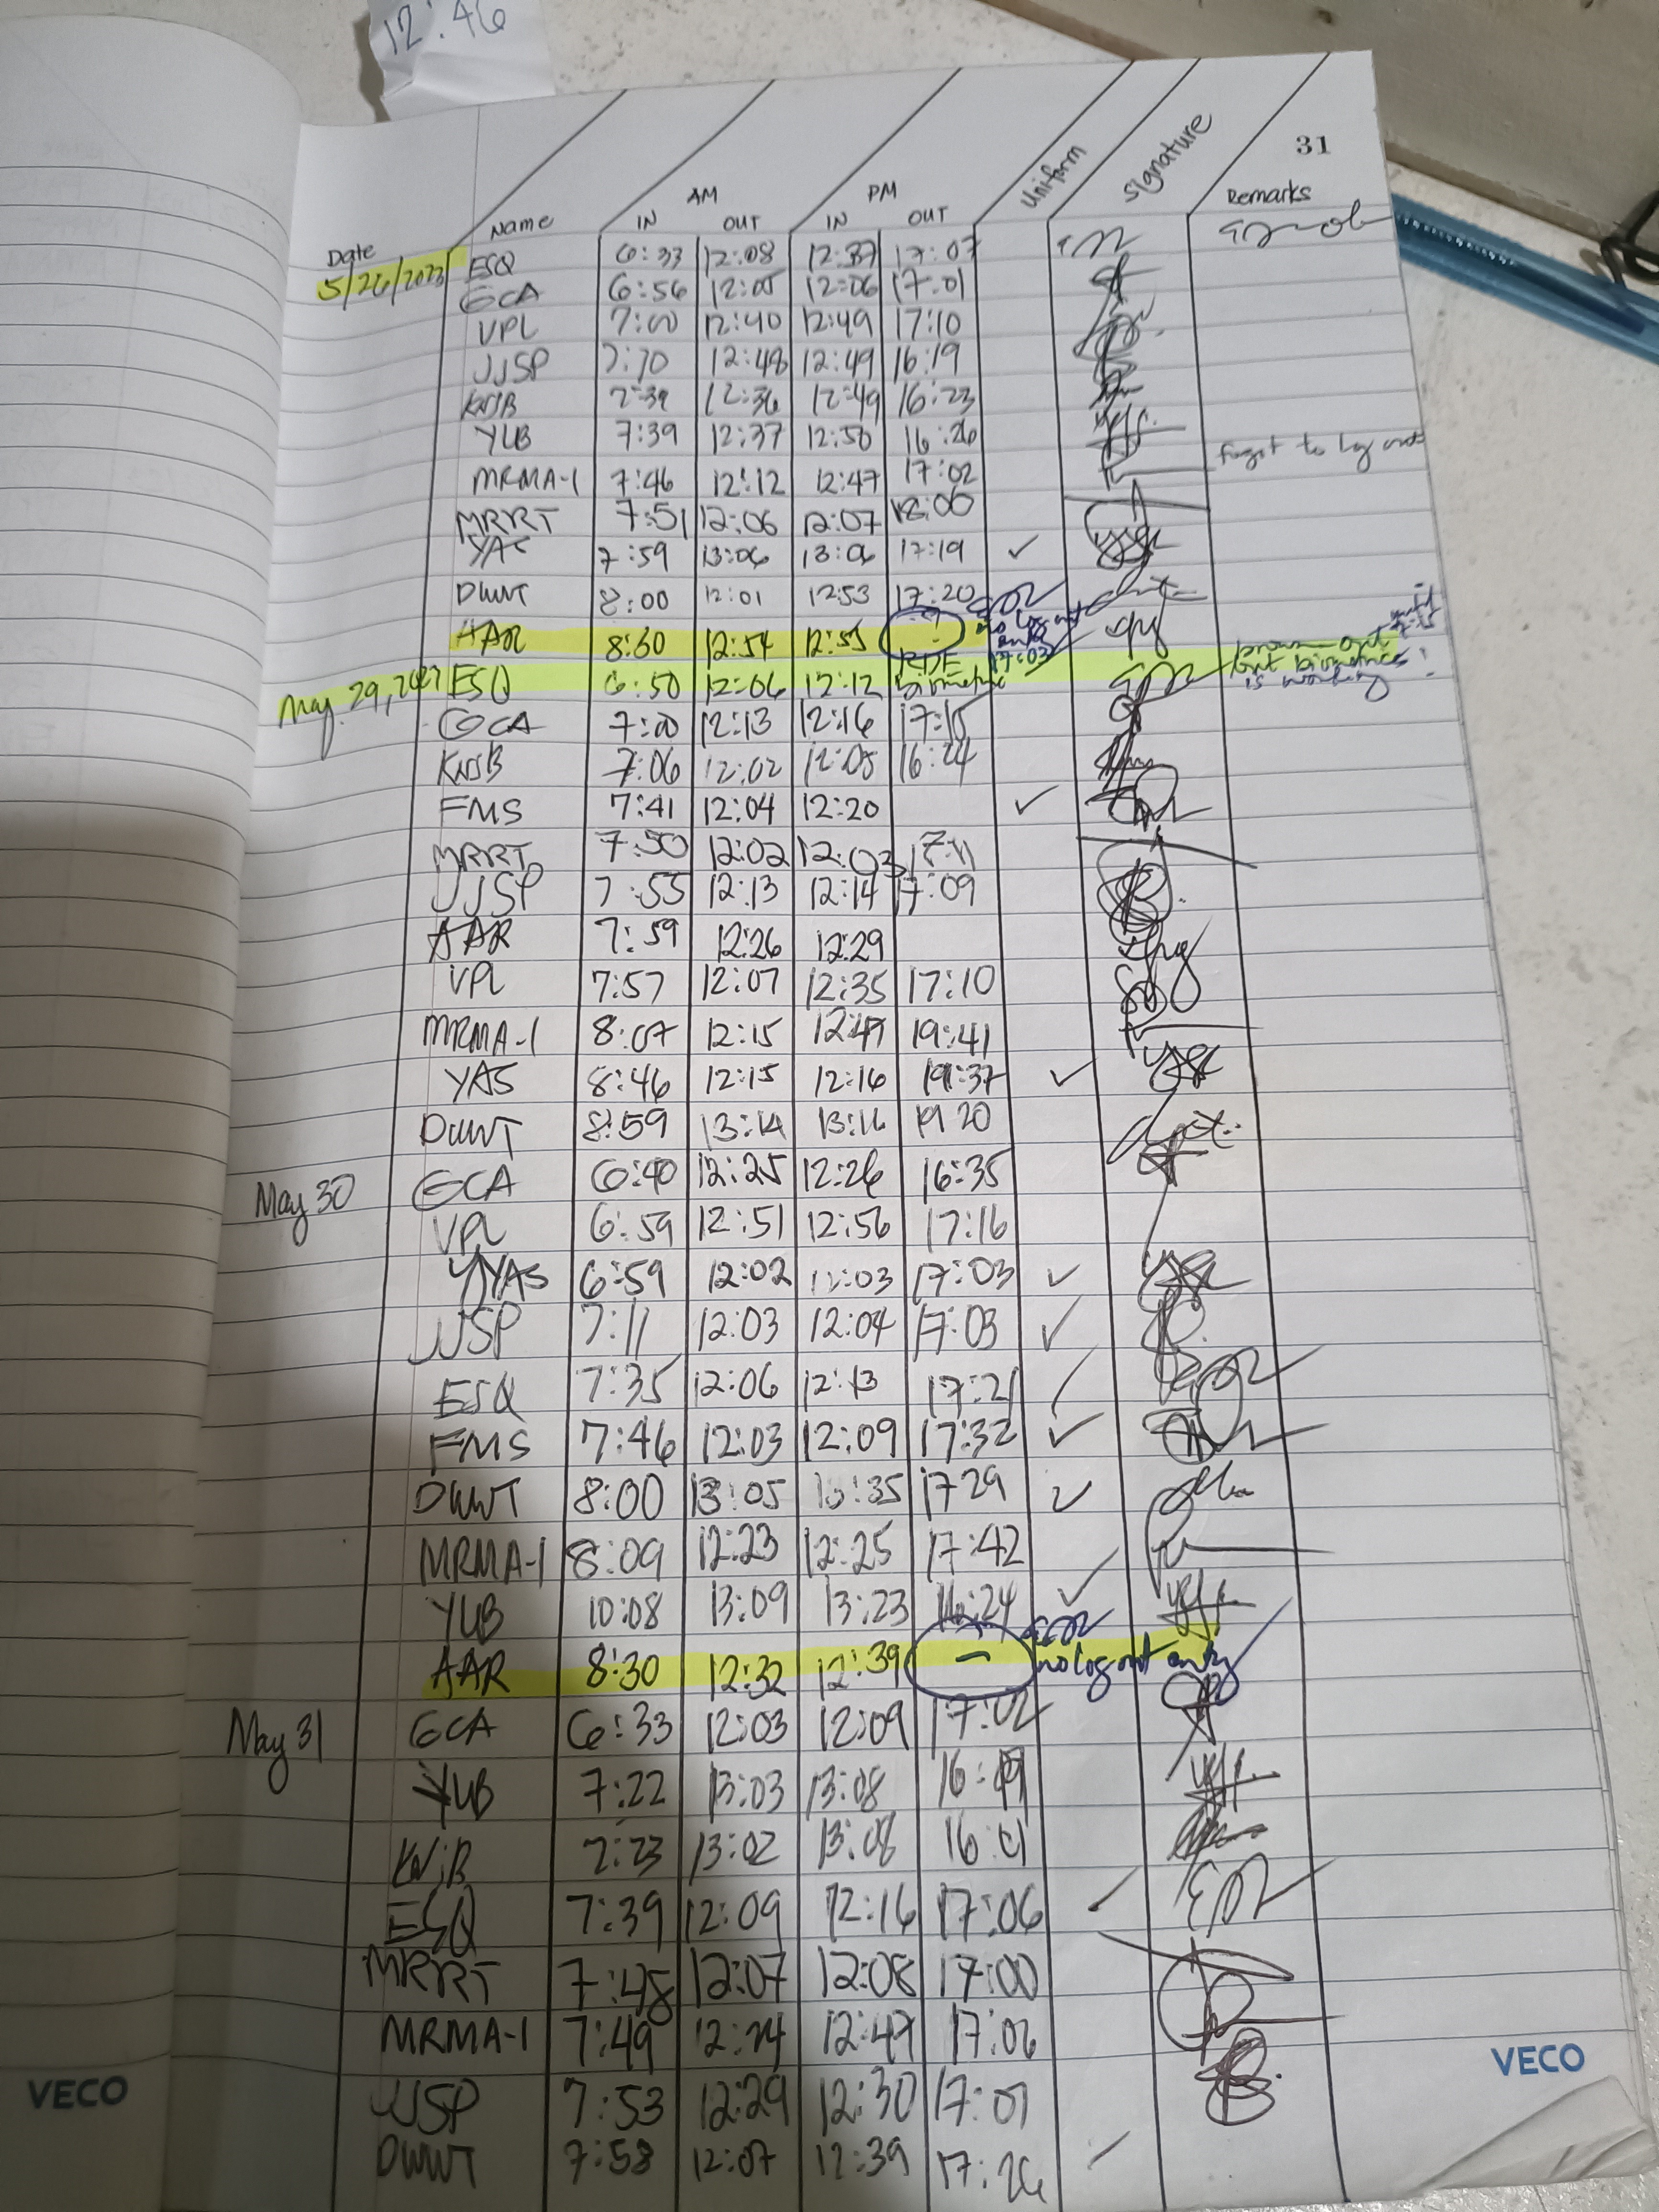 12:46
31
AM PM Uniform Signature
Date Name IN OUT IN OUT Remarks
5/26/2023 ESQ 6:33 12:08 12:37 17:07
GCA 6:56 12:05 12:06 17:01
VPL 7:00 12:40 12:49 17:10
JJSP 7:10 12:48 12:49 16:19
KNJB 7:39 12:36 12:49 16:23
YUB 7:39 12:37 12:50 16:26
MRMA-1 7:46 12:12 12:47 17:02 forgot to log out
MRRT 7:51 12:06 12:07 18:00
YAS 7:59 13:06 13:06 17:19 ✓
DWWT 8:00 12:01 12:53 17:20
AAR 8:30 12:54 12:55 ? no log out entry 17:03
May 29, 2023 ESQ 6:50 12:06 12:12 biometric brown-out but biometrics is working
GCA 7:00 12:13 12:16 17:15
KNJB 7:06 12:02 12:05 16:24
FMS 7:41 12:04 12:20 ✓
MRRT 7:50 12:02 12:03 17:11
JJSP 7:55 12:13 12:14 17:09
AAR 7:59 12:26 12:29
VPL 7:57 12:07 12:35 17:10
MRMA-1 8:07 12:15 12:47 19:41
YAS 8:46 12:15 12:16 19:37 ✓
DWWT 8:59 13:14 13:16 19 20
May 30 GCA 6:40 12:25 12:26 16:35
VPL 6:59 12:51 12:56 17:16
YAS 6:59 12:02 12:03 17:03 ✓
JJSP 7:11 12:03 12:04 17:03 ✓
ESQ 7:35 12:06 12:13 17:21 ✓
FMS 7:46 12:03 12:09 17:32 ✓
DWWT 8:00 13:05 13:35 17 29 ✓
MRMA-1 8:09 12:23 12:25 17:42
YUB 10:08 13:09 13:23 16:24 ✓
AAR 8:30 12:32 12:39 — no log out entry
May 31 GCA 6:33 12:03 12:09 17:02
YUB 7:22 13:03 13:08 16:49
KNJB 7:23 13:02 13:08 16:01
ESQ 7:39 12:09 12:16 17:06 ✓
MRRT 7:45 12:07 12:08 17:00
MRMA-1 7:49 12:24 12:47 17:06
JJSP 7:53 12:29 12:30 17:01
DWWT 7:58 12:07 12:39 17:26 ✓
VECO
VECO